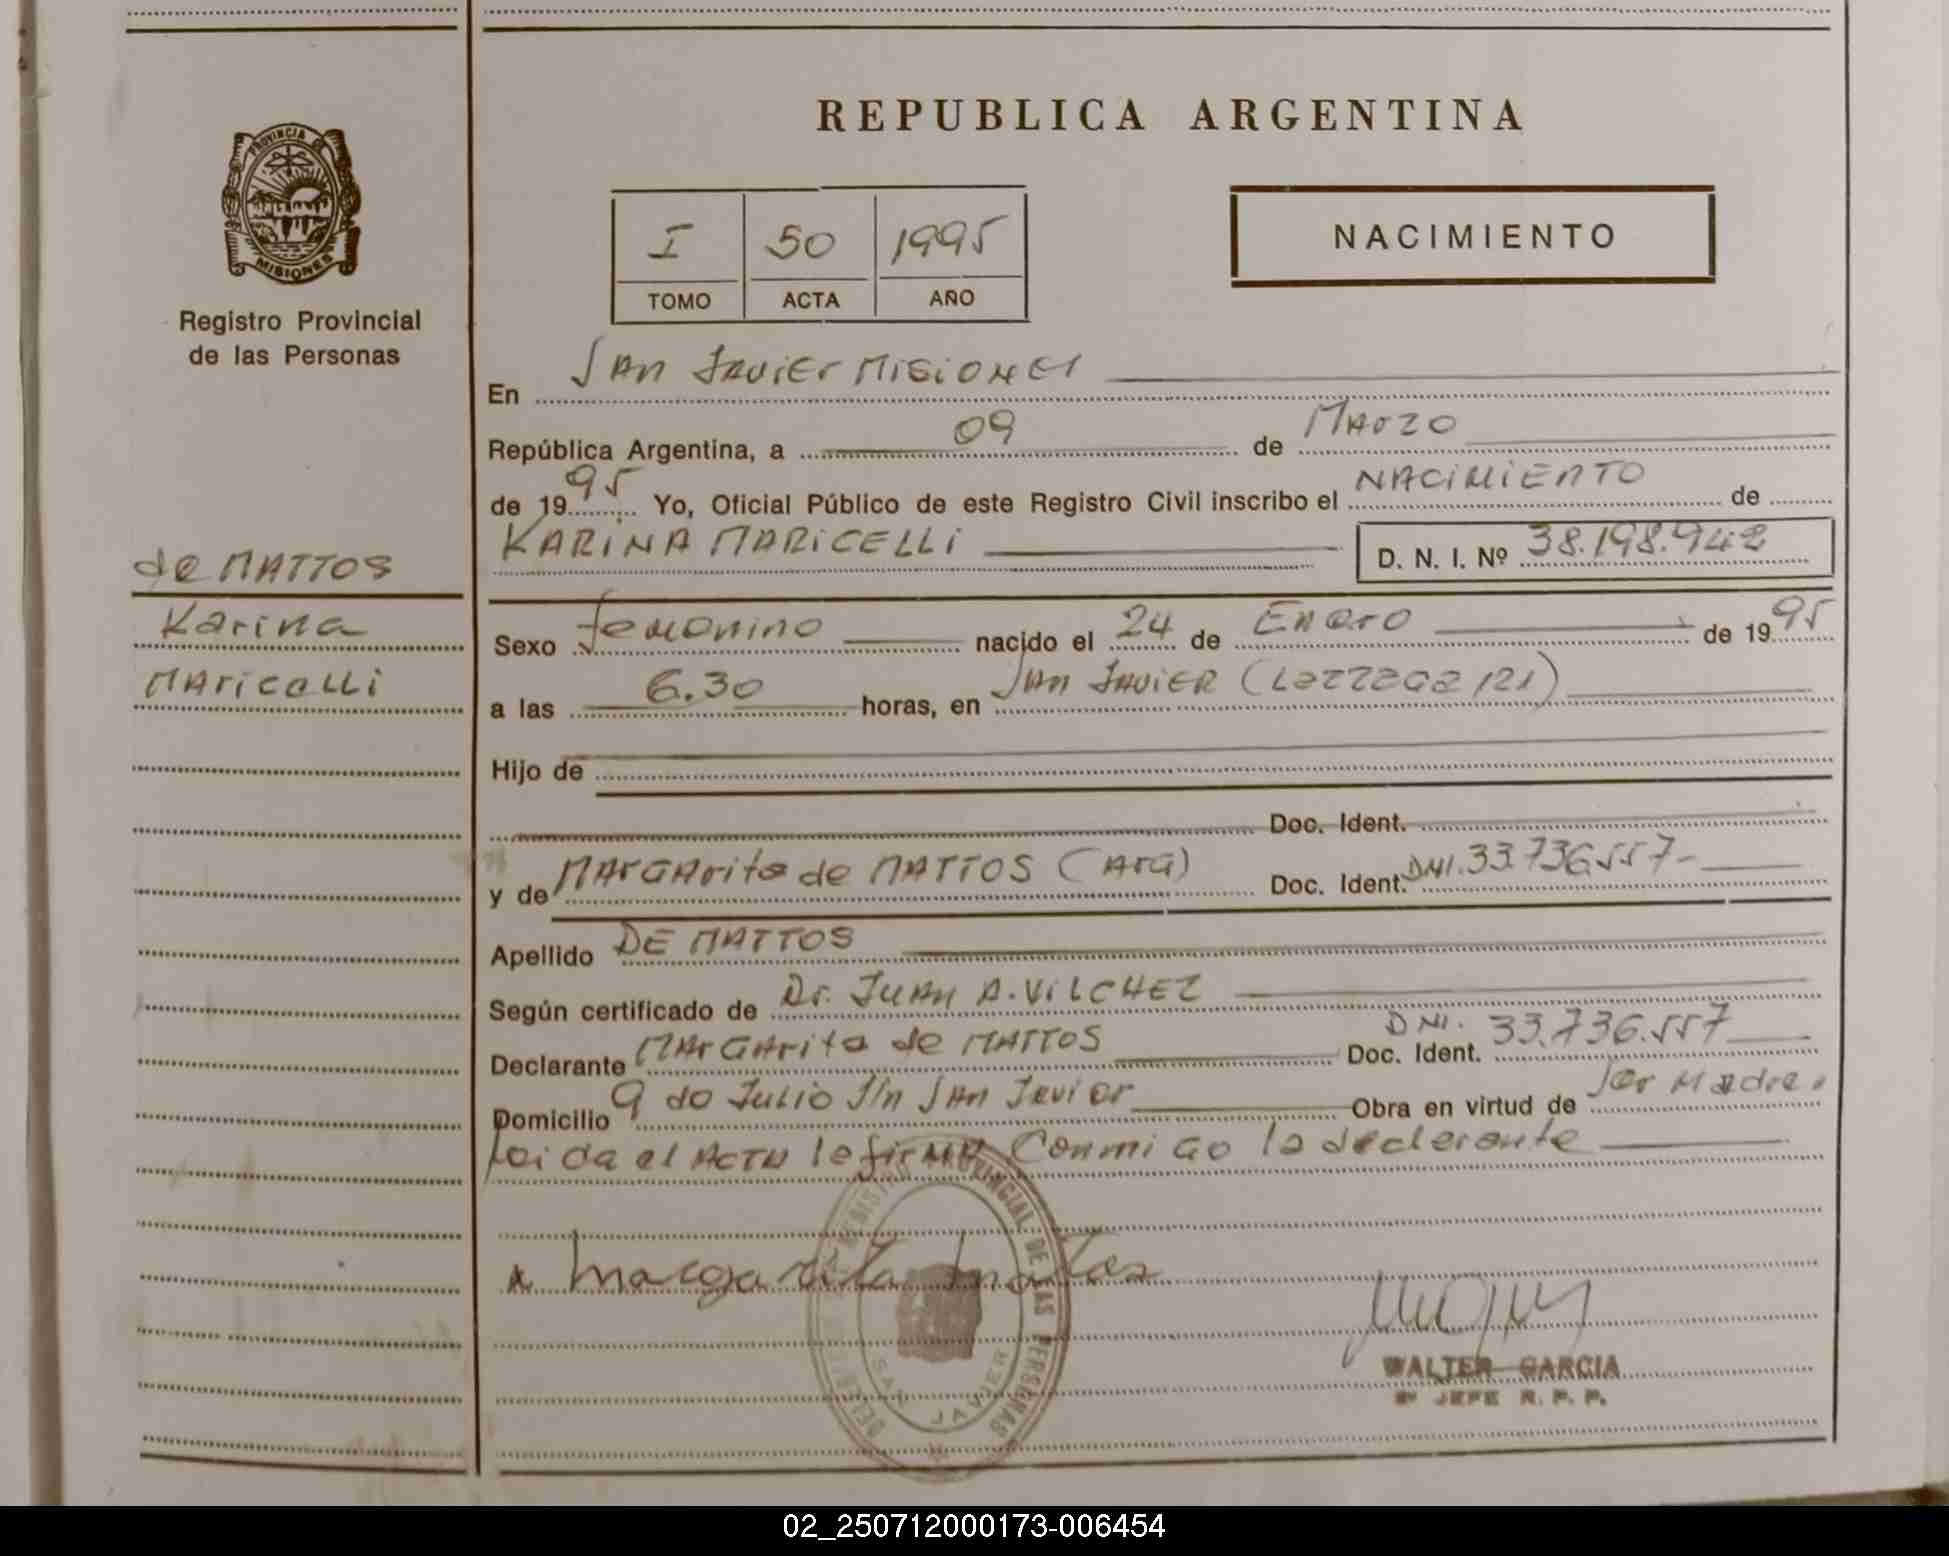 REPUBLICA ARGENTINA
PROVINCIA DE
MISIONES
Registro Provincial
de las Personas
I 50 1995
TOMO ACTA AÑO
NACIMIENTO
En San Javier Misiones
República Argentina, a 09 de Marzo
de 1995 Yo, Oficial Público de este Registro Civil inscribo el NACIMIENTO de
KARINA MARICELLI D. N. I. Nº 38.198.942
de MATTOS
Karina
Maricelli
Sexo femenino nacido el 24 de Enero de 1995
a las 6.30 horas, en San Javier
Hijo de
Doc. Ident.
y de Margarita de MATTOS (Arg) Doc. Ident. DNI. 33.736.557-
Apellido DE MATTOS
Según certificado de Dr. Juan A. VILCHEZ
Declarante Margarita de MATTOS Doc. Ident. DNI. 33.736.557
Domicilio 9 de Julio s/n San Javier Obra en virtud de ser Madre
Leida el Acta la firma Conmigo la declarante
REGISTRO PROVINCIAL DE LAS PERSONAS
SAN JAVIER
Margarita Mattos
WALTER GARCIA
JEFE R. P. P.
02_250712000173-006454